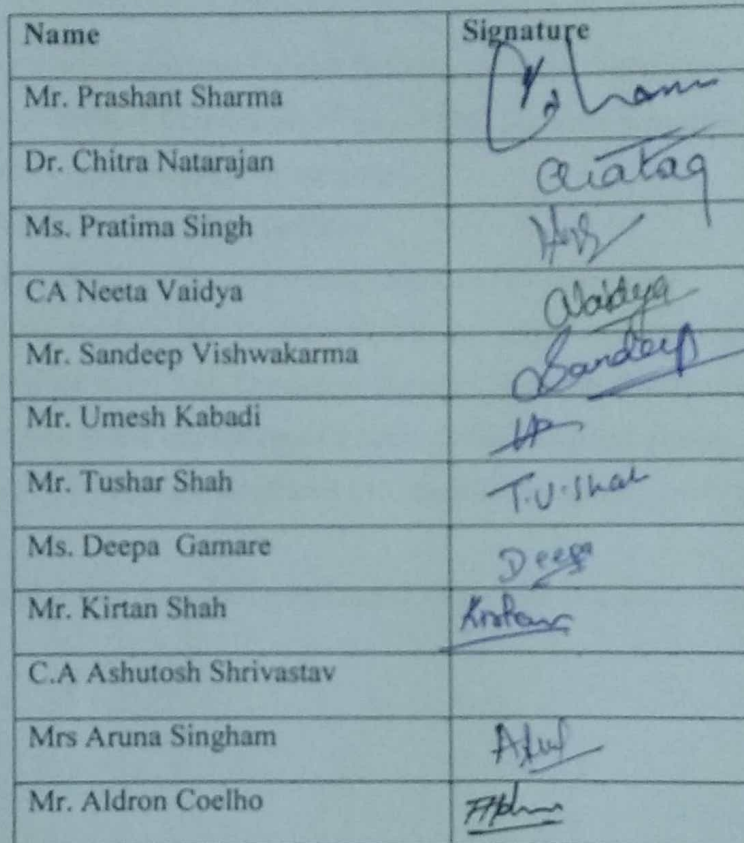 Name Signature
Mr. Prashant Sharma
Dr. Chitra Natarajan
Ms. Pratima Singh
CA Neeta Vaidya
Mr. Sandeep Vishwakarma Sandeep
Mr. Umesh Kabadi
Mr. Tushar Shah T.U.Shah
Ms. Deepa Gamare Deepa
Mr. Kirtan Shah
C.A Ashutosh Shrivastav
Mrs Aruna Singham
Mr. Aldron Coelho